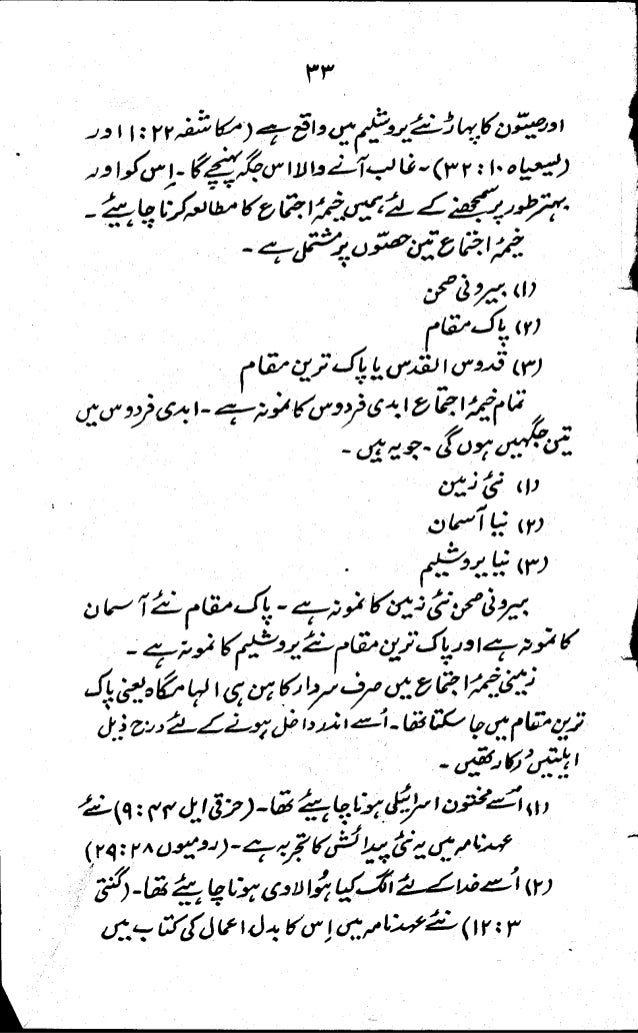 ۳۳
اور صیّون کا پہاڑ نئے یروشلیم میں واقع ہے (مکاشفہ ۲۲:۱۱ اور
(یسعیاہ ۱۰:۳۲)۔ غالب آنے والا اس جگہ پہنچے گا۔ اِس کو اور
بہتر طور پر سمجھنے کے لئے ہمیں خیمۂ اجتماع کا مطالعہ کرنا چاہیئے۔
خیمۂ اجتماع تین حصّوں پر مشتمل ہے۔
(۱) بیرونی صحن
(۲) پاک مقام
(۳) قدوس القدس یا پاک ترین مقام
تمام خیمۂ اجتماع ابدی فردوس کا نمونہ ہے۔ ابدی فردوس میں
تین جگہیں ہوں گی۔ جو یہ ہیں۔
(۱) نئی زمین
(۲) نیا آسمان
(۳) نیا یروشلیم
بیرونی صحن نئی زمین کا نمونہ ہے۔ پاک مقام نئے آسمان
کا نمونہ ہے اور پاک ترین مقام نئے یروشلیم کا نمونہ ہے۔
زمینی خیمۂ اجتماع میں صرف سردار کاہن ہی الہامگاہ یعنی پاک
ترین مقام میں جا سکتا تھا۔ اُسے اندر داخل ہونے کے لئے درج ذیل
اہلیتیں درکار تھیں۔
(۱) اُسے مختون اسرائیلی ہونا چاہیئے تھا۔ (حزقی ایل ۴۴:۹) نئے
عہد نامہ میں یہ نئی پیدائش کا تجربہ ہے۔ (رومیوں ۲۸:۲۹)
(۲) اُسے خدا کے لئے الگ کیا ہُوا لاوی ہونا چاہیئے تھا۔ (گنتی
۳:۱۲) نئے عہد نامہ میں اِس کا بدل اعمال کی کتاب میں